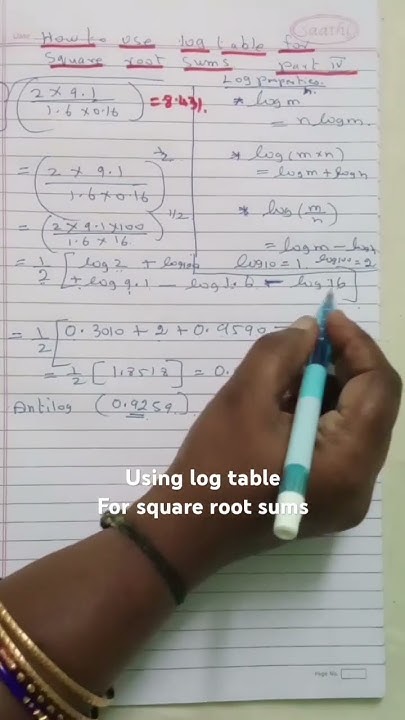 Date
Saathi
How to use log table for
square root sums part IV
(2 × 9.1 / 1.6 × 0.16) = 8.431.
Log properties.
* log mⁿ
= n log m.
= (2 × 9.1 / 1.6 × 0.16)^1/2
* log (m×n)
= log m + log n
= (2 × 9.1 × 100 / 1.6 × 16)^1/2
* log (m/n)
= log m – log n
= 1/2 [log 2 + log 100
log 10 = 1 log 100 = 2
+ log 9.1 – log 1.6 – log 16]
= 1/2 [0.3010 + 2 + 0.9590 –
= 1/2 [1.8518] = 0.
Antilog (0.9259)
Using log table
For square root sums
Page No.